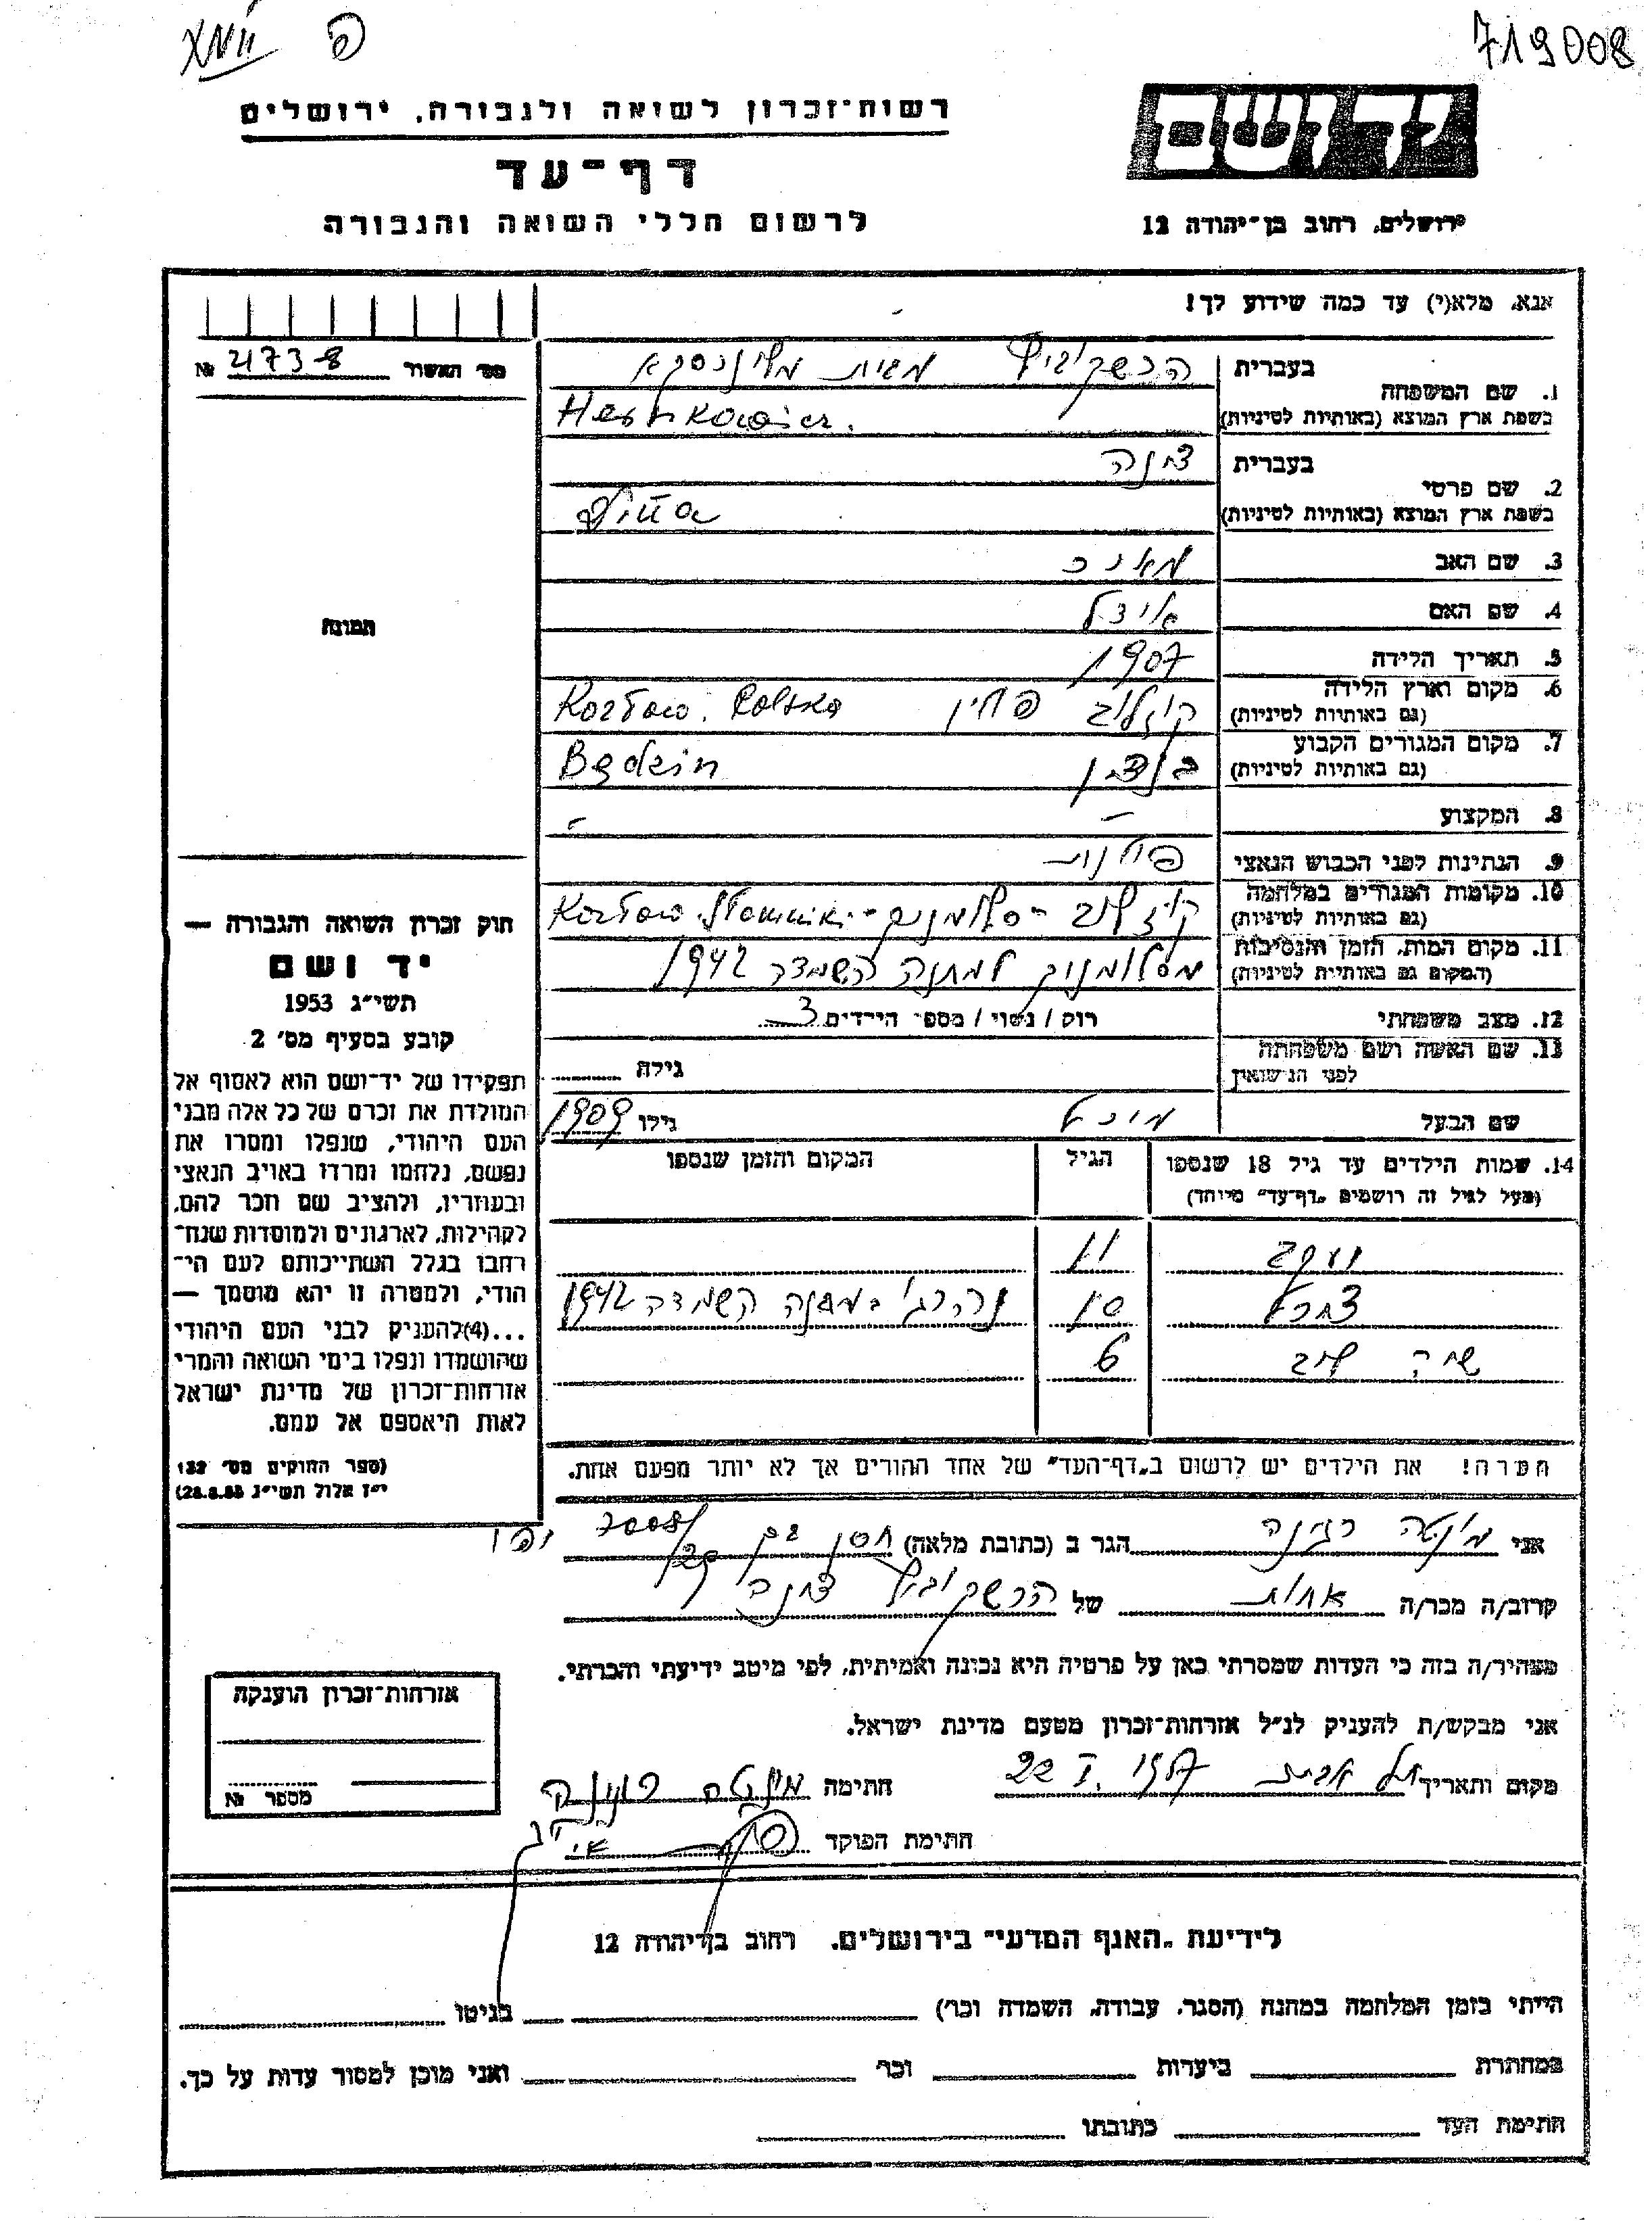 719008
רשות־זכרון לשואה ולגבורה, ירושלים
יד ושם
דף־עד
לרשום חללי השואה והגבורה
ירושלים, רחוב בן־יהודה 12
אנא, מלא(י) עד כמה שידוע לך!
מס׳ האשור № 2173-8
1. שם המשפחה
בעברית הרשקוביץ מבית
בשפת ארץ המוצא (באותיות לטיניות)
2. שם פרטי
בעברית
בשפת ארץ המוצא (באותיות לטיניות)
3. שם האב
4. שם האם
5. תאריך הלידה 1907
6. מקום וארץ הלידה קוזלוב פולין Kozłow. Polska
(גם באותיות לטיניות)
7. מקום המגורים הקבוע בנדין Będzin
(גם באותיות לטיניות)
8. המקצוע -
9. הנתינות לפני הכבוש הנאצי פולנית
10. מקומות המגורים במלחמה קוזלוב - סלומניקי Kozłow. Słomniki
(גם באותיות לטיניות)
11. מקום המות, הזמן והנסיבות למחנה השמדה 1942
(המקום גם באותיות לטיניות)
12. מצב משפחתי רווק / נשוי / מספר הילדים 3
13. שם האשה ושם משפחתה לפני הנישואין גילה
שם הבעל גילו 1909
14. שמות הילדים עד גיל 18 שנספו הגיל המקום והזמן שנספו
(מעל לגיל זה רושמים „דף־עד״ מיוחד)
יעקב 11
10 נהרגו במחנה השמדה 1942
6
הערה! את הילדים יש לרשום ב„דף־העד״ של אחד ההורים אך לא יותר מפעם אחת.
תמונה
חוק זכרון השואה והגבורה —
יד ושם
תשי״ג 1953
קובע בסעיף מס׳ 2
תפקידו של יד־ושם הוא לאסוף אל
המולדת את זכרם של כל אלה מבני
העם היהודי, שנפלו ומסרו את
נפשם, נלחמו ומרדו באויב הנאצי
ובעוזריו, ולהציב שם וזכר להם,
לקהילות, לארגונים ולמוסדות שנח־
רבו בגלל השתייכותם לעם הי־
הודי, ולמטרה זו יהא מוסמך —
...(4)להעניק לבני העם היהודי
שהושמדו ונפלו בימי השואה והמרי
אזרחות־זכרון של מדינת ישראל
לאות היאספם אל עמם.
(ספר החוקים מס׳ 132
י״ז אלול תשי״ג 28.8.53)
אני הגר ב (כתובת מלאה) יפו
קרוב/ה מכר/ה אחות של הרשקוביץ
מצהיר/ה בזה כי העדות שמסרתי כאן על פרטיה היא נכונה ואמיתית, לפי מיטב ידיעתי והכרתי.
אני מבקש/ת להעניק לנ״ל אזרחות־זכרון מטעם מדינת ישראל.
מקום ותאריך תל אביב 22 I. 1957 חתימה
חתימת הפוקד
אזרחות־זכרון הוענקה
מספר №
לידיעת „האגף המדעי״ בירושלים. רחוב בן־יהודה 12
הייתי בזמן המלחמה במחנה (הסגר, עבודה, השמדה וכר׳) בגיטו
במחתרת ביערות וכר׳ ואני מוכן למסור עדות על כך.
חתימת העד כתובתו